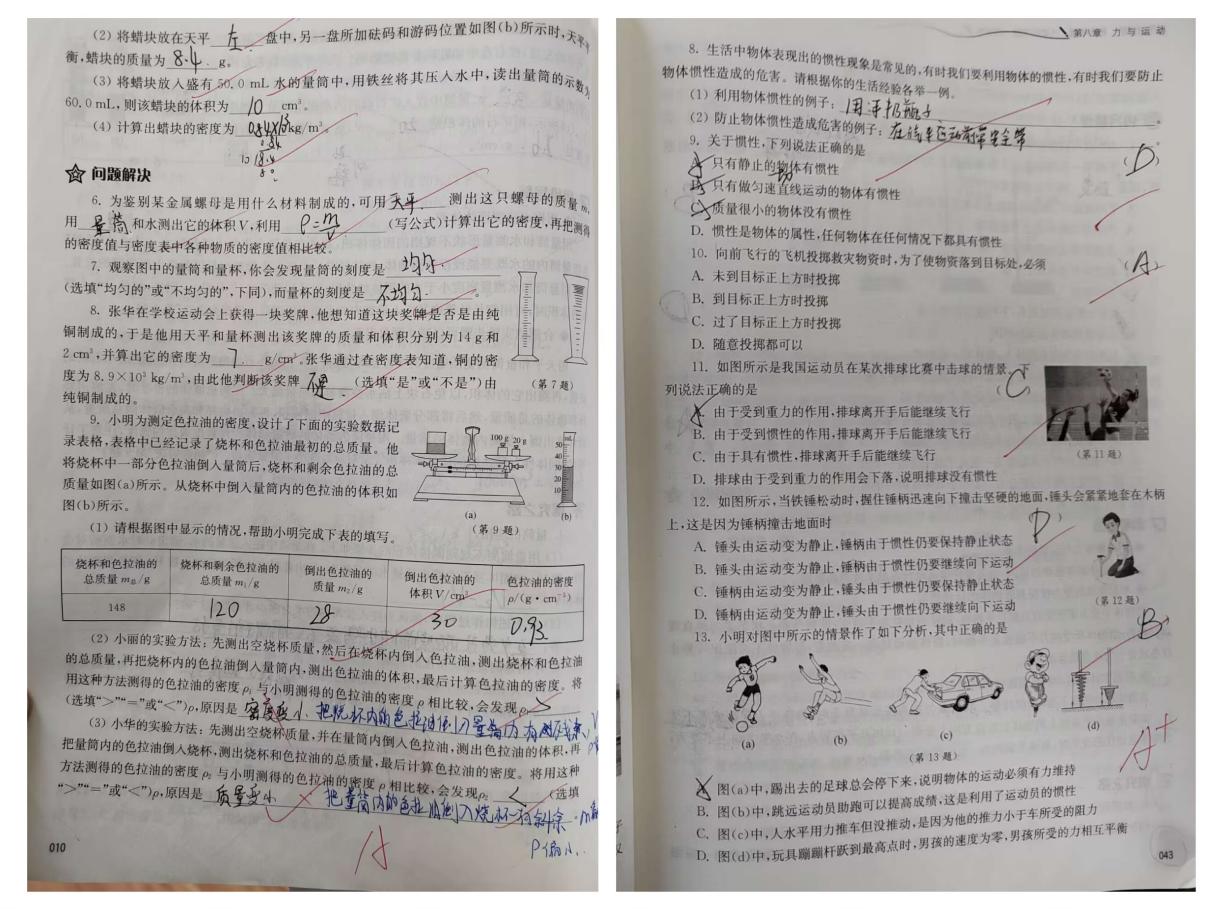 (2) 将蜡块放在天平 左 盘中,另一盘所加砝码和游码位置如图(b)所示时,天平平
衡,蜡块的质量为 8.4 g。
(3) 将蜡块放入盛有 50.0 mL 水的量筒中,用铁丝将其压入水中,读出量筒的示数为
60.0 mL,则该蜡块的体积为 10 cm³。
(4) 计算出蜡块的密度为 kg/m³。
问题解决
6. 为鉴别某金属螺母是用什么材料制成的,可用 天平 测出这只螺母的质量 m,
用 量筒 和水测出它的体积 V,利用 ρ=m/V (写公式)计算出它的密度,再把测得
的密度值与密度表中各种物质的密度值相比较。
7. 观察图中的量筒和量杯,你会发现量筒的刻度是 均匀
(选填“均匀的”或“不均匀的”,下同),而量杯的刻度是 不均匀 。
8. 张华在学校运动会上获得一块奖牌,他想知道这块奖牌是否是由纯
铜制成的,于是他用天平和量杯测出该奖牌的质量和体积分别为 14 g 和
2 cm³,并算出它的密度为 7 g/cm³。张华通过查密度表知道,铜的密
度为 8.9×10³ kg/m³,由此他判断该奖牌 不是 (选填“是”或“不是”)由
纯铜制成的。
(第 7 题)
9. 小明为测定色拉油的密度,设计了下面的实验数据记
录表格,表格中已经记录了烧杯和色拉油最初的总质量。他
将烧杯中一部分色拉油倒入量筒后,烧杯和剩余色拉油的总
质量如图(a)所示。从烧杯中倒入量筒内的色拉油的体积如
图(b)所示。
100 g 20 g
mL
50
40
30
20
10
(a) (b)
(第 9 题)
(1) 请根据图中显示的情况,帮助小明完成下表的填写。
烧杯和色拉油的总质量 m总/g 烧杯和剩余色拉油的总质量 m₁/g 倒出色拉油的质量 m₂/g 倒出色拉油的体积 V/cm³ 色拉油的密度 ρ/(g·cm⁻³)
148 120 28 30 0.93
(2) 小丽的实验方法:先测出空烧杯质量,然后在烧杯内倒入色拉油,测出烧杯和色拉油
的总质量,再把烧杯内的色拉油倒入量筒内,测出色拉油的体积,最后计算色拉油的密度。将
用这种方法测得的色拉油的密度 ρ₁ 与小明测得的色拉油的密度 ρ 相比较,会发现 ρ₁ >
(选填“>”“=”或“<”)ρ,原因是 密度变小 把烧杯内的色拉油倒入量筒内有残余
(3) 小华的实验方法:先测出空烧杯质量,并在量筒内倒入色拉油,测出色拉油的体积,再
把量筒内的色拉油倒入烧杯,测出烧杯和色拉油的总质量,最后计算色拉油的密度。将用这种
方法测得的色拉油的密度 ρ₂ 与小明测得的色拉油的密度 ρ 相比较,会发现 ρ₂ < (选填
“>”“=”或“<”)ρ,原因是 质量变小 把量筒内的色拉油倒入烧杯 m偏
ρ偏小
A
010
第八章 力 与 运 动
8. 生活中物体表现出的惯性现象是常见的,有时我们要利用物体的惯性,有时我们要防止
物体惯性造成的危害。请根据你的生活经验各举一例。
(1) 利用物体惯性的例子: 用手扔瓶子 。
(2) 防止物体惯性造成危害的例子: 安全带 。
9. 关于惯性,下列说法正确的是 ( D )
A. 只有静止的物体有惯性
B. 只有做匀速直线运动的物体有惯性
C. 质量很小的物体没有惯性
D. 惯性是物体的属性,任何物体在任何情况下都具有惯性
10. 向前飞行的飞机投掷救灾物资时,为了使物资落到目标处,必须 ( A )
A. 未到目标正上方时投掷
B. 到目标正上方时投掷
C. 过了目标正上方时投掷
D. 随意投掷都可以
11. 如图所示是我国运动员在某次排球比赛中击球的情景。下
列说法正确的是 ( C )
A. 由于受到重力的作用,排球离开手后能继续飞行
B. 由于受到惯性的作用,排球离开手后能继续飞行
C. 由于具有惯性,排球离开手后能继续飞行
D. 排球由于受重力的作用会下落,说明排球没有惯性
(第 11 题)
12. 如图所示,当铁锤松动时,握住锤柄迅速向下撞击坚硬的地面,锤头会紧紧地套在木柄
上,这是因为锤柄撞击地面时 ( D )
A. 锤头由运动变为静止,锤柄由于惯性仍要保持静止状态
B. 锤头由运动变为静止,锤柄由于惯性仍要继续向下运动
C. 锤柄由运动变为静止,锤头由于惯性仍要保持静止状态
D. 锤柄由运动变为静止,锤头由于惯性仍要继续向下运动
(第 12 题)
13. 小明对图中所示的情景作了如下分析,其中正确的是 B
(a) (b) (c) (d)
(第 13 题)
A+
A. 图(a)中,踢出去的足球总会停下来,说明物体的运动必须有力维持
B. 图(b)中,跳远运动员助跑可以提高成绩,这是利用了运动员的惯性
C. 图(c)中,人水平用力推车但没推动,是因为他的推力小于车所受的阻力
D. 图(d)中,玩具蹦蹦杆跃到最高点时,男孩的速度为零,男孩所受的力相互平衡
043